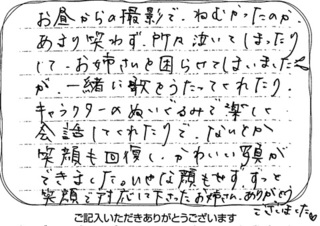 お昼からの撮影で、ねむかったのか
あまり笑わず、所々泣いてしまったり
して、お姉さんを困らせてしまいました
が、一緒に歌をうたってくれたり、
キャラクターのぬいぐるみで楽しく
会話してくれたりで、なんとか
笑顔も回復し、かわいい写真が
できました。いやな顔もせず、ずっと
笑顔で対応して下さったお姉さん、ありがとう
ございました♡
ご記入いただきありがとうございます